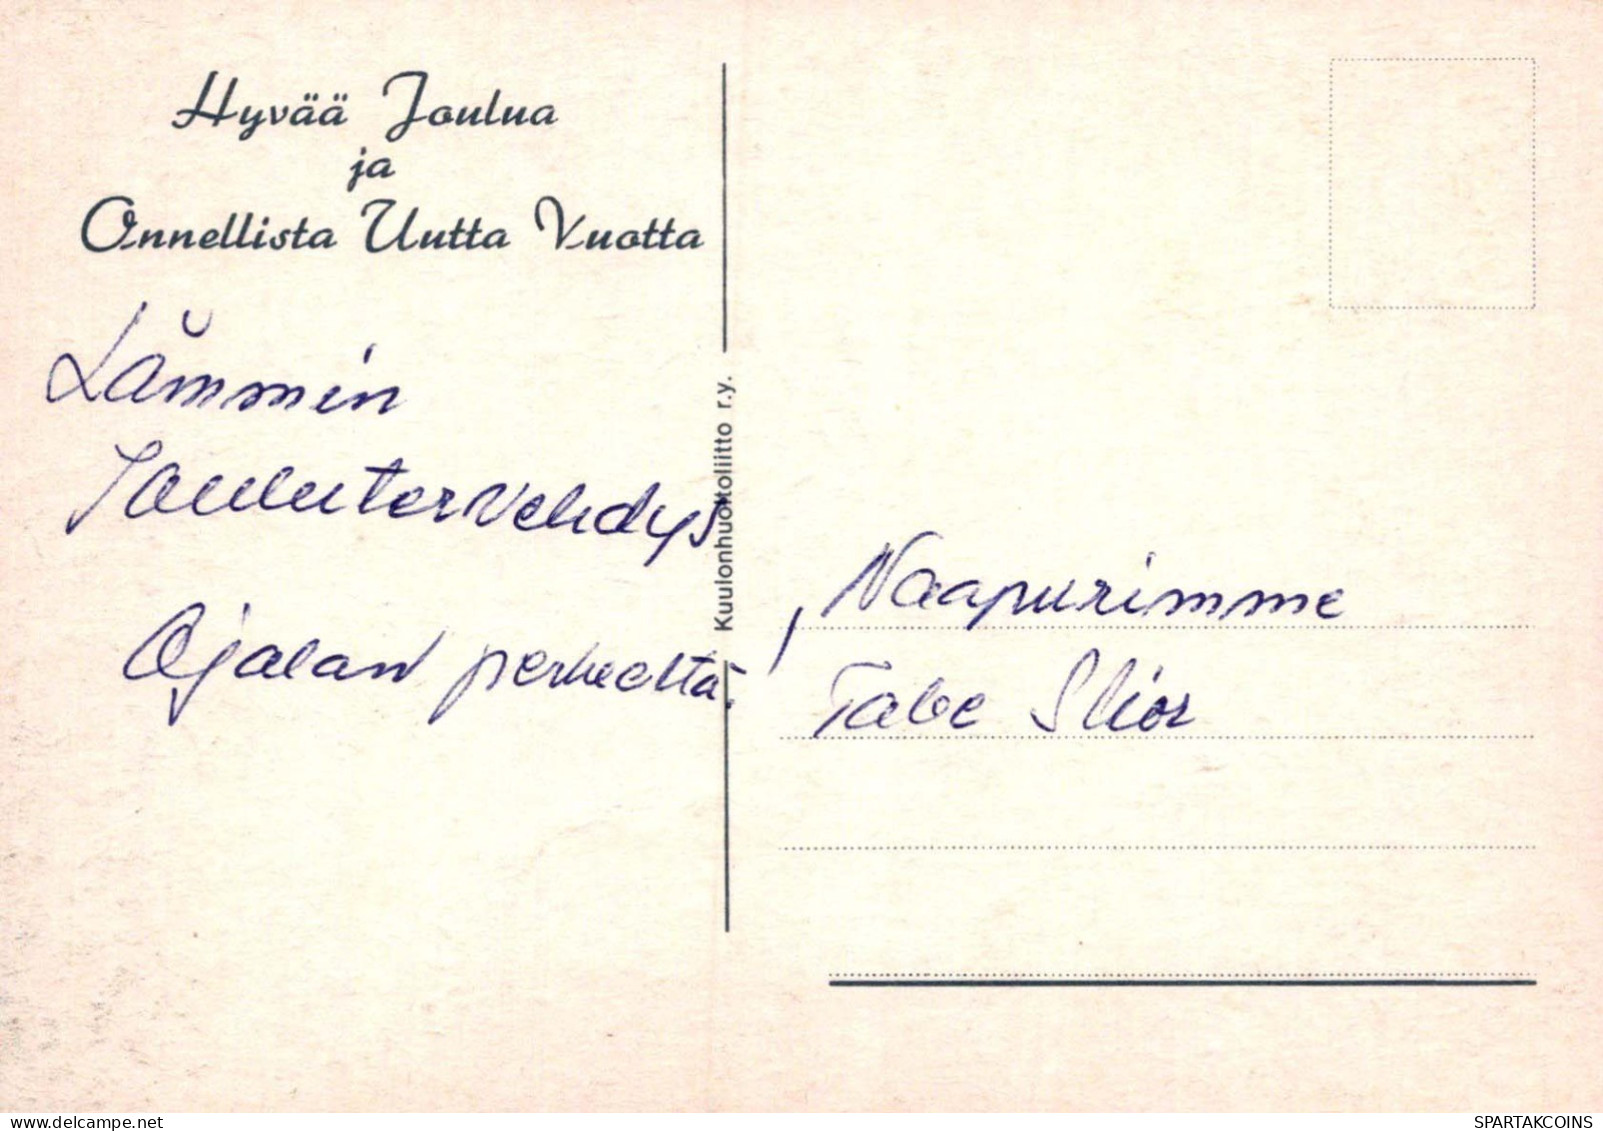 Hyvää Joulua
ja
Onnellista Uutta Vuotta
Lämmin
Joulutervehdys
Ojalan perheeltä.
Kuulonhuoltoliitto r.y.
Naapurimme
Tabe
SPARTAKCOINS